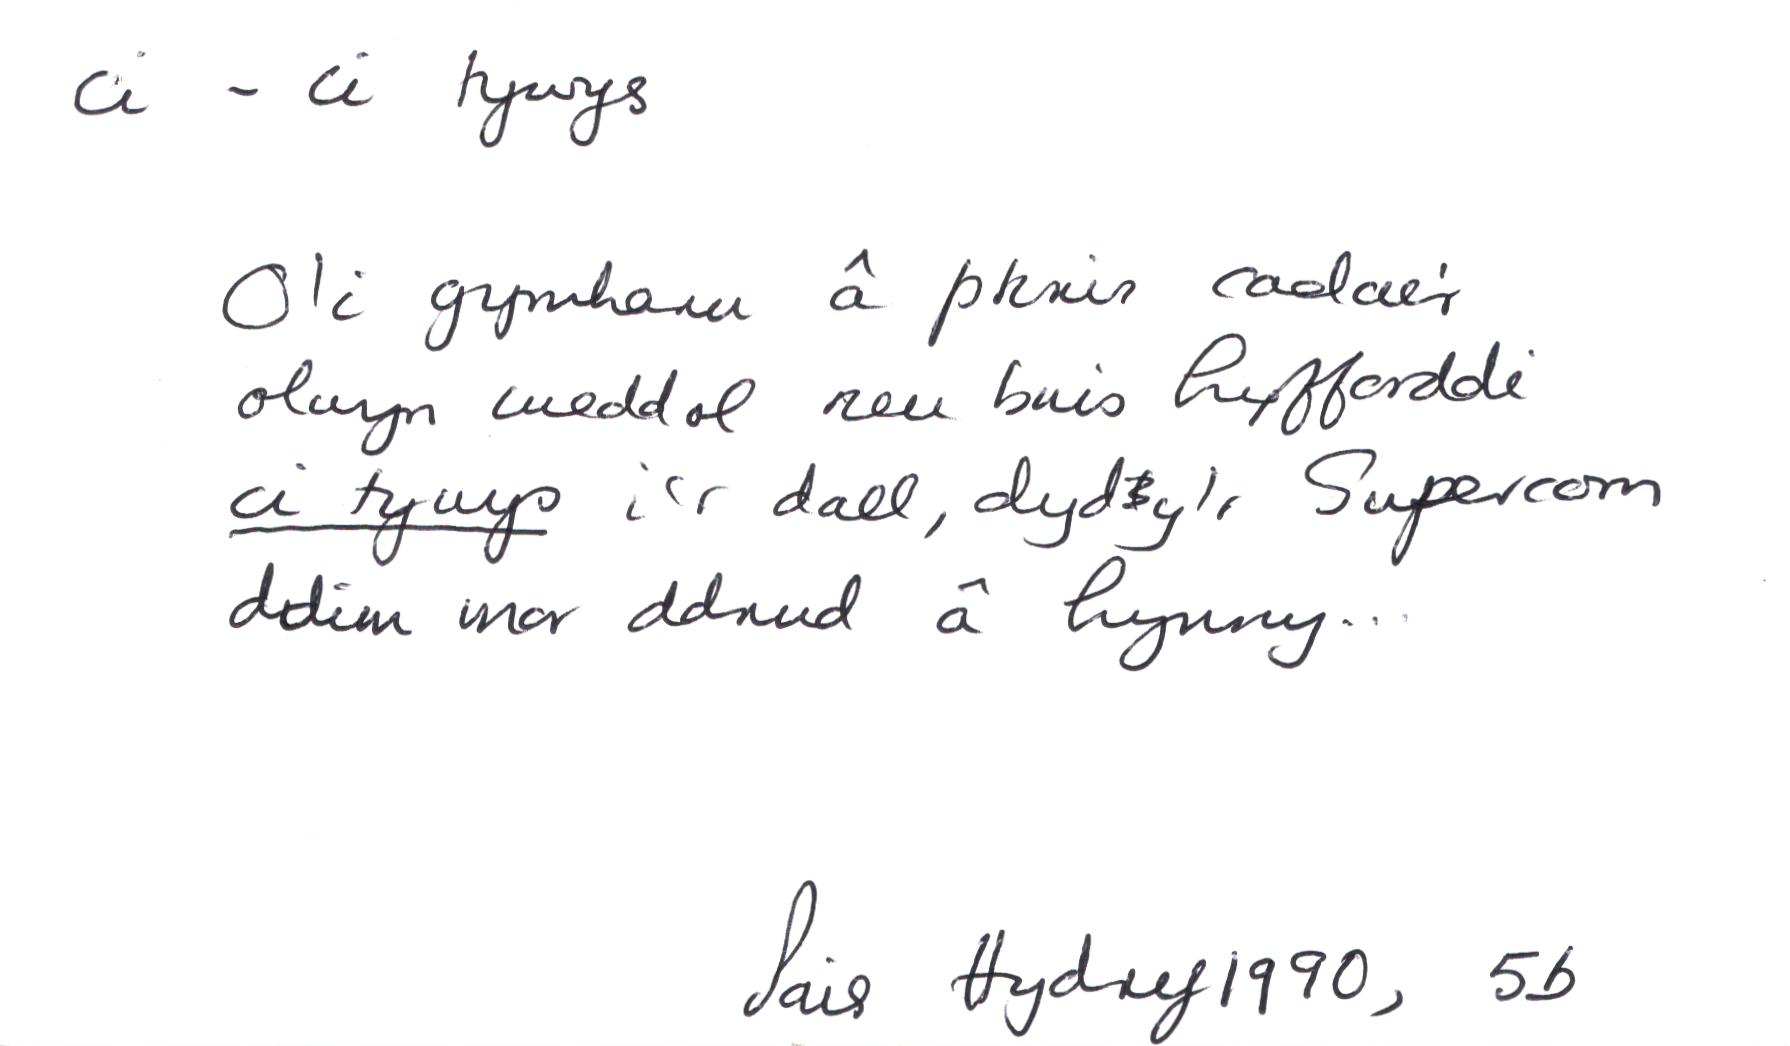 ci - ci tywys
O'i gymharu â phris cadair
olwyn weddol neu bris hyfforddi
ci tywys i'r dall, dydy'r Supercom
ddim mor ddrud â hynny...
Pais Hydref 1990, 5b